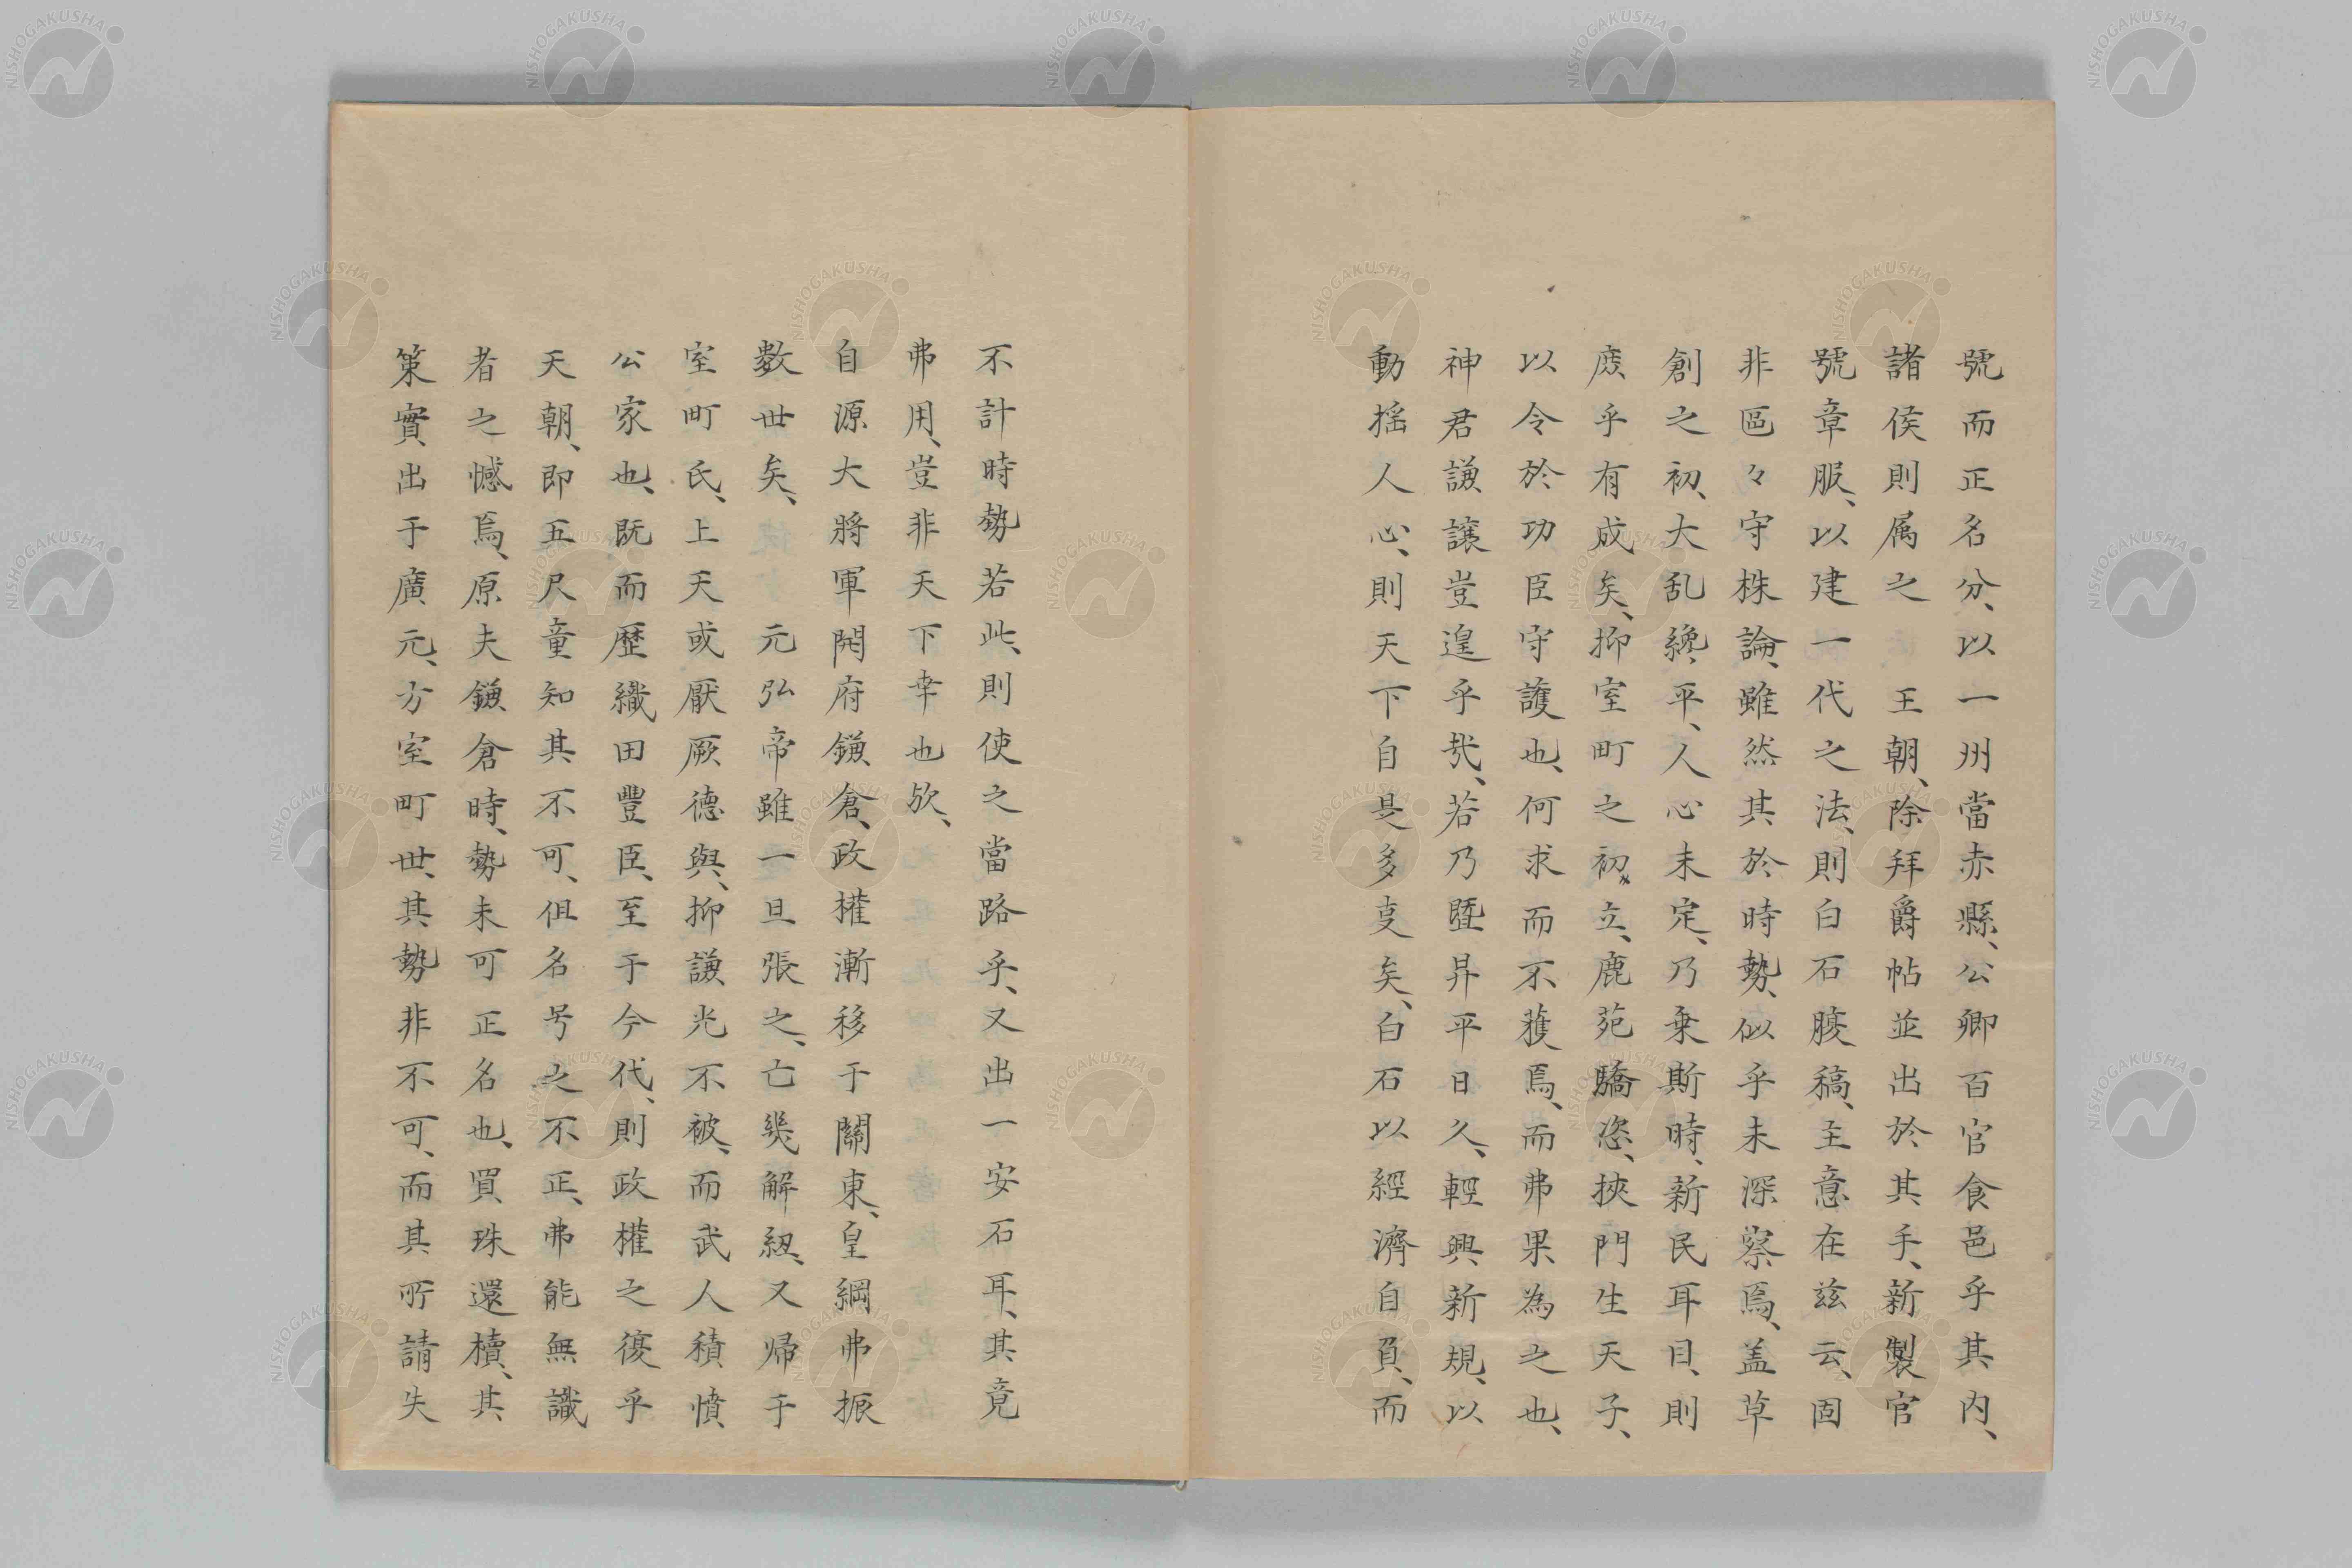 號而正名分、以一州當赤縣、公卿百官食邑乎其内、
諸侯則属之　王朝、除拜爵帖並出於其手、新製官
號章服、以建一代之法、則白石腹稿、主意在兹云、固
非區々守株論、雖然其於時勢、似乎未深察焉、盖草
創之初、大乱纔平、人心未定、乃乗斯時、新民耳目、則
庶乎有成矣、抑室町之初立、鹿苑驕恣、挾門生天子、
以令於功臣守護也、何求而不獲焉、而弗果為之也、
神君謙讓豈遑乎哉、若乃曁昇平日久、輕興新規、以
動揺人心、則天下自是多事矣、白石以經濟自負、而
不計時勢若此、則使之當路乎、又出一安石耳、其竟
弗用、豈非天下幸也欤、
自源大將軍開府鎌倉、政權漸移于關東、皇綱弗振
數世矣、元弘帝雖一旦張之、亡幾解紐、又帰于
室町氏、上天或厭厥德與、抑謙光不被、而武人積憤
公家也、既而歴織田豐臣、至于今代、則政權之復乎
天朝、即五尺童知其不可、但名号之不正、弗能無識
者之憾焉、原夫鎌倉時、勢未可正名也、買珠還櫝、其
策實出于廣元、方室町世、其勢非不可、而其所請失
NISHOGAKUSHA